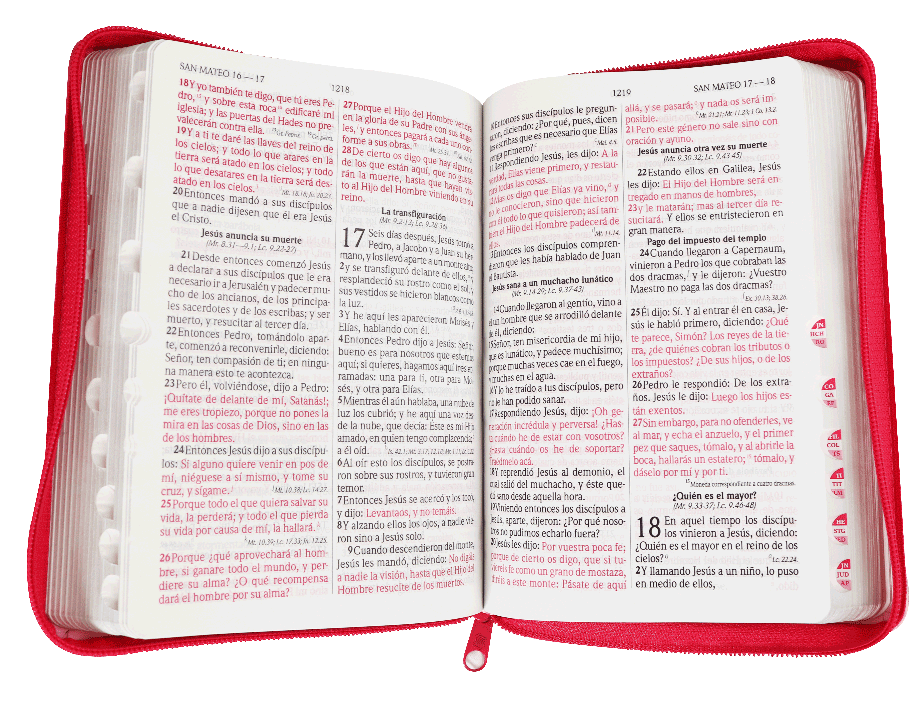 SAN MATEO 16—17
1218
18Y yo también te digo, que tú eres Pe-
dro, y sobre esta roca edificaré mi
iglesia; y las puertas del Hades no pre-
valecerán contra ella.
19Y a ti te daré las llaves del reino de
los cielos; y todo lo que atares en la
tierra será atado en los cielos; y todo
lo que desatares en la tierra será des-
atado en los cielos.
20Entonces mandó a sus discípulos
que a nadie dijesen que él era Jesús
el Cristo.
Jesús anuncia su muerte
(Mr. 8.31—9.1; Lc. 9.22-27)
21Desde entonces comenzó Jesús
a declarar a sus discípulos que le era
necesario ir a Jerusalén y padecer mu-
cho de los ancianos, de los principa-
les sacerdotes y de los escribas; y ser
muerto, y resucitar al tercer día.
22Entonces Pedro, tomándolo apar-
te, comenzó a reconvenirle, diciendo:
Señor, ten compasión de ti; en ningu-
na manera esto te acontezca.
23Pero él, volviéndose, dijo a Pedro:
¡Quítate de delante de mí, Satanás!;
me eres tropiezo, porque no pones la
mira en las cosas de Dios, sino en las
de los hombres.
24Entonces Jesús dijo a sus discípu-
los: Si alguno quiere venir en pos de
mí, niéguese a sí mismo, y tome su
cruz, y sígame.
Mt. 10.38; Lc. 14.27.
25Porque todo el que quiera salvar su
vida, la perderá; y todo el que pierda
su vida por causa de mí, la hallará.
Mt. 10.39; Lc. 17.33; Jn. 12.25.
26Porque ¿qué aprovechará al hom-
bre, si ganare todo el mundo, y per-
diere su alma? ¿O qué recompensa
dará el hombre por su alma?
27Porque el Hijo del Hombre vendrá
en la gloria de su Padre con sus ánge-
les, y entonces pagará a cada uno con-
forme a sus obras.
28De cierto os digo que hay algunos
de los que están aquí, que no gusta-
rán la muerte, hasta que hayan vis-
to al Hijo del Hombre viniendo en su
reino.
La transfiguración
(Mr. 9.2-13; Lc. 9.28-36)
17 Seis días después, Jesús tomó a
Pedro, a Jacobo y a Juan su her-
mano, y los llevó aparte a un monte alto;
2y se transfiguró delante de ellos,
y resplandeció su rostro como el sol, y
sus vestidos se hicieron blancos como
la luz.
3Y he aquí les aparecieron Moisés y
Elías, hablando con él.
4Entonces Pedro dijo a Jesús: Señor,
bueno es para nosotros que estemos
aquí; si quieres, hagamos aquí tres en-
ramadas: una para ti, otra para Moi-
sés, y otra para Elías.
5Mientras él aún hablaba, una nube de
luz los cubrió; y he aquí una voz desde
la nube, que decía: Este es mi Hijo
amado, en quien tengo complacencia;
a él oíd.
6Al oír esto los discípulos, se postra-
ron sobre sus rostros, y tuvieron gran
temor.
7Entonces Jesús se acercó y los tocó,
y dijo: Levantaos, y no temáis.
8Y alzando ellos los ojos, a nadie vie-
ron sino a Jesús solo.
9Cuando descendieron del monte,
Jesús les mandó, diciendo: No digáis
a nadie la visión, hasta que el Hijo del
Hombre resucite de los muertos.
1219
SAN MATEO 17—18
Entonces sus discípulos le pregun-
diciendo: ¿Por qué, pues, dicen
escribas que es necesario que Elías
venga primero?
Respondiendo Jesús, les dijo: A la
verdad, Elías viene primero, y restau-
todas las cosas.
os digo que Elías ya vino, y
no le conocieron, sino que hicieron
con él todo lo que quisieron; así tam-
el Hijo del Hombre padecerá de
ellos.
Mt. 11.14.
Entonces los discípulos compren-
dieron que les había hablado de Juan
el Bautista.
Jesús sana a un muchacho lunático
(Mr. 9.14-29; Lc. 9.37-43)
14Cuando llegaron al gentío, vino a
un hombre que se arrodilló delante
de él, diciendo:
Señor, ten misericordia de mi hijo,
que es lunático, y padece muchísimo;
porque muchas veces cae en el fuego,
y muchas en el agua.
Y lo he traído a tus discípulos, pero
no le han podido sanar.
Respondiendo Jesús, dijo: ¡Oh ge-
neración incrédula y perversa! ¿Has-
ta cuándo he de estar con vosotros?
¿Hasta cuándo os he de soportar?
Traédmelo acá.
Y reprendió Jesús al demonio, el
cual salió del muchacho, y éste que-
dó sano desde aquella hora.
Viniendo entonces los discípulos a
Jesús, aparte, dijeron: ¿Por qué noso-
tros no pudimos echarlo fuera?
Jesús les dijo: Por vuestra poca fe;
porque de cierto os digo, que si tu-
viereis fe como un grano de mostaza,
diréis a este monte: Pásate de aquí
allá, y se pasará; y nada os será im-
posible.
Mt. 21.21; Mr. 11.23; 1 Co. 13.2.
21Pero este género no sale sino con
oración y ayuno.
Jesús anuncia otra vez su muerte
(Mr. 9.30-32; Lc. 9.43-45)
22Estando ellos en Galilea, Jesús
les dijo: El Hijo del Hombre será en-
tregado en manos de hombres,
23y le matarán; mas al tercer día re-
sucitará. Y ellos se entristecieron en
gran manera.
Pago del impuesto del templo
24Cuando llegaron a Capernaum,
vinieron a Pedro los que cobraban las
dos dracmas, y le dijeron: ¿Vuestro
Maestro no paga las dos dracmas?
Ex. 30.13; 38.26.
25Él dijo: Sí. Y al entrar él en casa, Je-
sús le habló primero, diciendo: ¿Qué
te parece, Simón? Los reyes de la tie-
rra, ¿de quiénes cobran los tributos o
los impuestos? ¿De sus hijos, o de los
extraños?
26Pedro le respondió: De los extra-
ños. Jesús le dijo: Luego los hijos es-
tán exentos.
27Sin embargo, para no ofenderles, ve
al mar, y echa el anzuelo, y el primer
pez que saques, tómalo, y al abrirle la
boca, hallarás un estatero; tómalo, y
dáselo por mí y por ti.
Moneda correspondiente a cuatro dracmas.
¿Quién es el mayor?
(Mr. 9.33-37; Lc. 9.46-48)
18 En aquel tiempo los discípu-
los vinieron a Jesús, diciendo:
¿Quién es el mayor en el reino de los
cielos?
Lc. 22.24.
2Y llamando Jesús a un niño, lo puso
en medio de ellos,
CO
GA
COL
TI
TIT
HE
JUD
AP